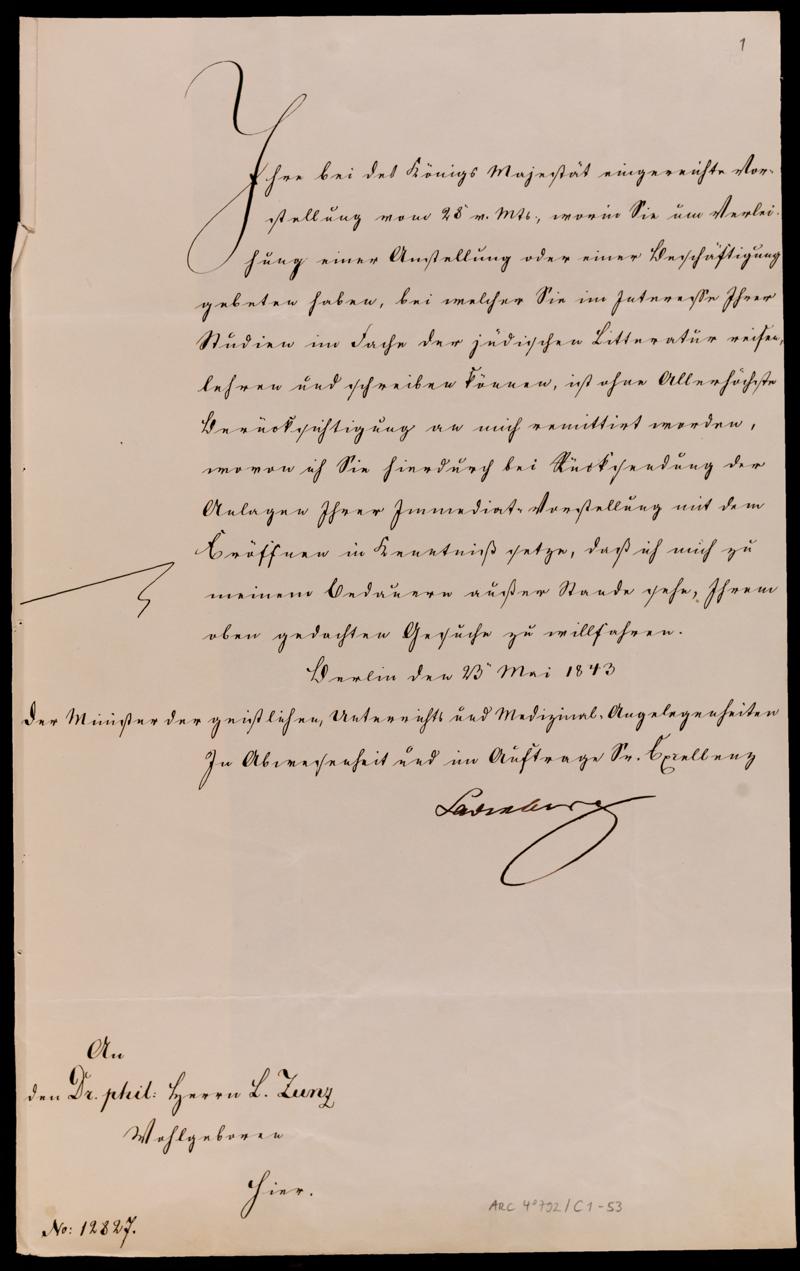 1
Ihre bei des Königs Majestät eingereichte Vor-
stellung vom 28 v. Mts., worin Sie um Verlei-
hung einer Anstellung oder einer Beschäftigung
gebeten haben, bei welcher Sie im Interesse Ihrer
Studien im Fache der jüdischen Litteratur reisen,
lehren und schreiben können, ist ohne Allerhöchste
Berücksichtigung an mich remittirt worden,
wovon ich Sie hierdurch bei Rücksendung der
Anlagen Ihrer Immediat-Vorstellung mit dem
Eröffnen in Kenntniß setze, daß ich mich zu
meinem Bedauern außer Stande sehe, Ihrem
oben gedachten Gesuche zu willfahren.
Berlin den 23 Mai 1843
Der Minister der geistlichen, Unterrichts und Medizinal-Angelegenheiten
In Abwesenheit und im Auftrage Sr. Excellenz
Ladenberg
An
den Dr. phil: Herrn L. Zunz
Wohlgeboren
hier.
No: 12827.
ARC 4°792/C1-53